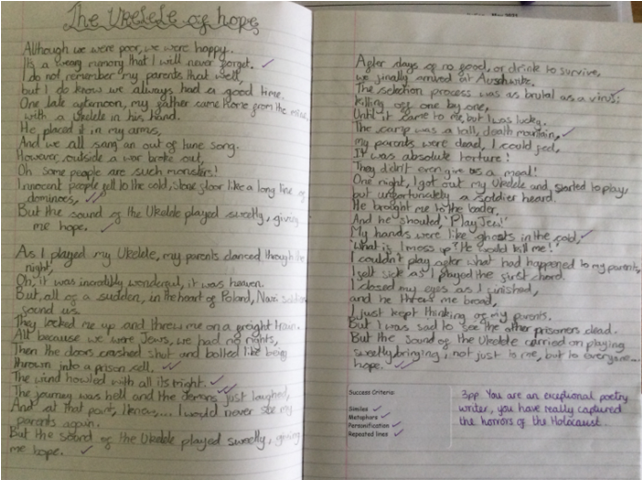 The Ukelele of hope
Although we were poor, we were happy.
Its a memory that I will never forget.
I do not remember my parents that well,
but I do know we always had a good time.
One late afternoon, my father came home from the
with a Ukelele in his hand.
He placed it in my arms,
And we all sang an out of tune song.
However, outside a war broke out,
Oh some people are such monsters!
Innocent people fell to the cold, stone floor like a long line of
dominoes,
But the sound of the Ukelele played sweetly, giving
me hope.
As I played my Ukelele, my parents danced though the
night,
Oh, it was incredibly wonderful, it was heaven
But, all of a sudden, in the heart of Poland, Nazi soldiers
found us.
They locked me up and threw me on a freight train.
All because we were Jews, we had no rights,
Then the doors crashed shut and bolted like being
thrown into a prison cell.
The wind howled with all its might.
The journey was hell and the demons just laughed,
And at that point, I knew.... I would never see my
parents again.
But the sound of the Ukelele played sweetly, giving
me hope.
After days of no food, or drink to survive,
we finally arrived at
The selection process was as brutal as a virus:
killing off one by one,
Until it came to me, but I was lucky.
The camp was a tall, death mountain,
my parents were dead, I could feel,
It was absolute torture!
They didn't even give us a meal!
One night, I got out my Ukelele and started to play
but unfortunately a soldier heard.
He brought me to the
And he shouted, "Play Jew!"
My hands were like ghosts in the cold,
"What if I mess up? He would kill me!"
I couldn't play after what had happened to my parents,
I felt sick as I played the first chord.
I closed my eyes as I finished,
and he threw me bread,
I just kept thinking of my parents,
But I was sad to see the other prisoners dead.
But the sound of the Ukelele carried on playing
sweetly, bringing, not just to me, but to everyone...
hope.
Success Criteria:
Similes
Metaphors
Personification
Repeated lines
3pp You are an exceptional poetry
writer, you have really captured
the horrors of the Holocaust.